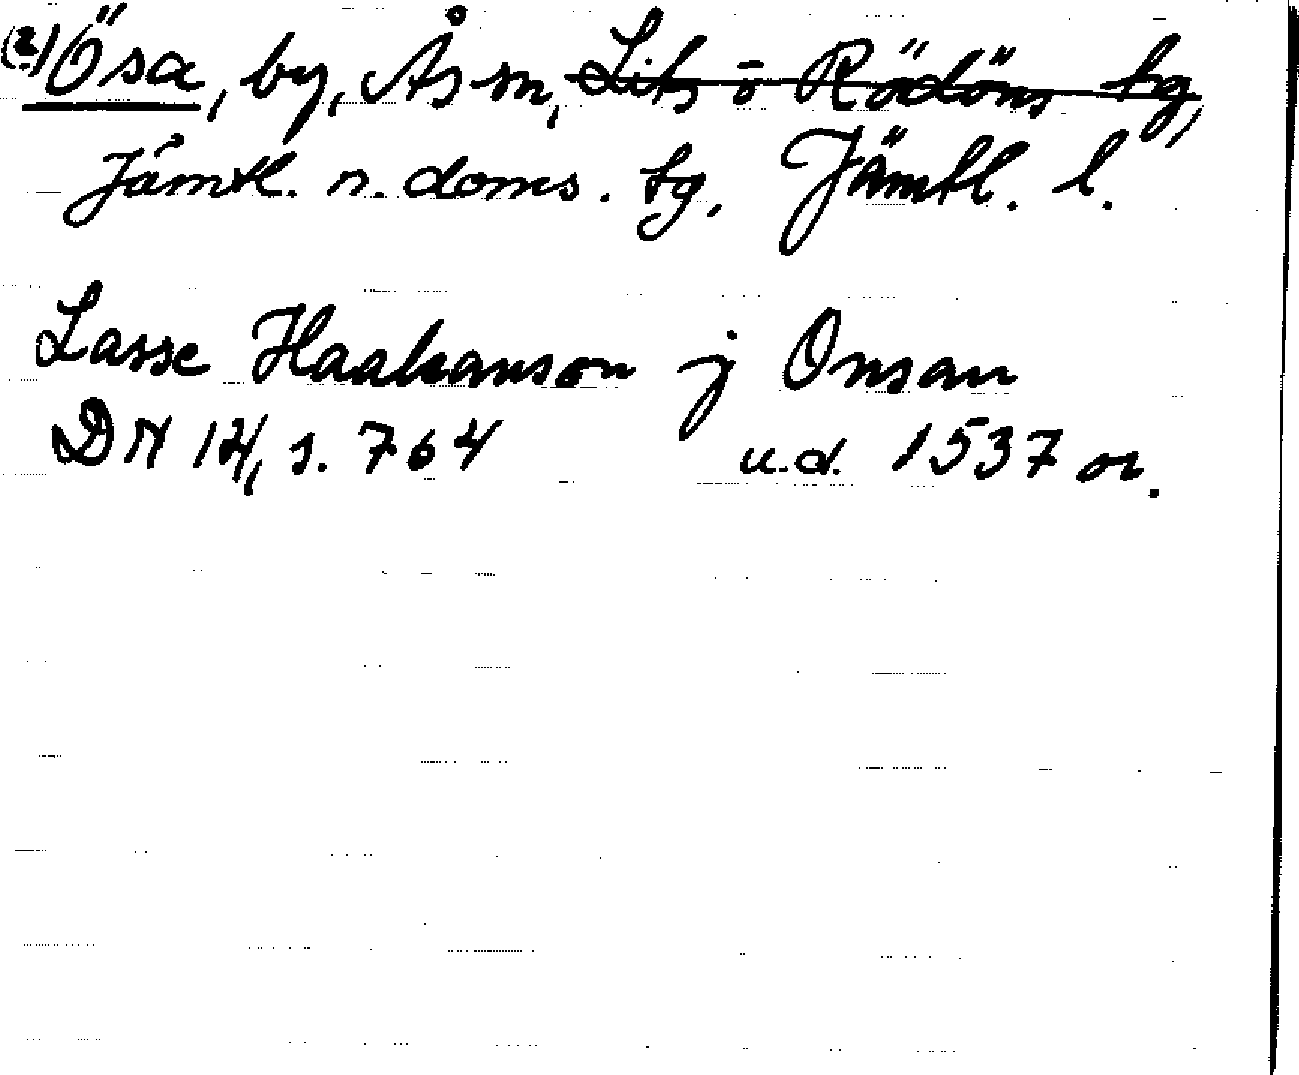 (2) Ösa, by, Ås sn, Lits o Rödöns tg,
Jämtl. n. doms. tg, Jämtl. l.
Lasse Haakanson j Onsan
DN 14, s. 764 u.d. 1537 or.